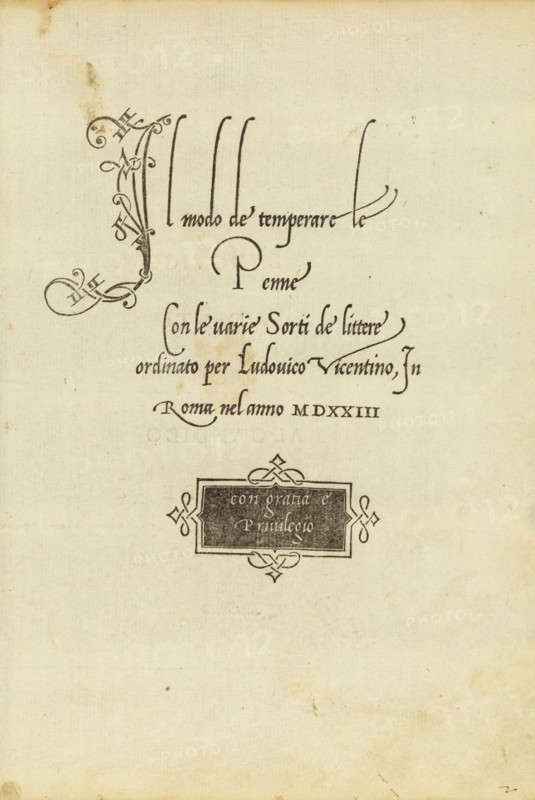 Il modo de temperare le
Penne
Con le uarie Sorti de littere
ordinato per Ludouico Vicentino, In
Roma nel anno MDXXIII
con gratia e
Priuilegio